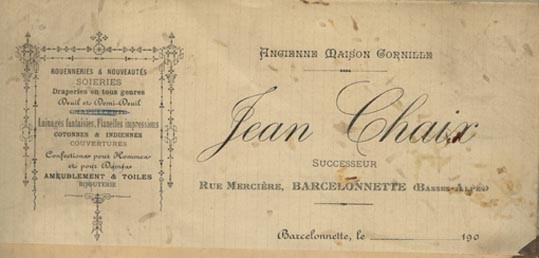 ROUENNERIES & NOUVEAUTÉS
SOIERIES
Draperies en tous genres
Deuil et Demi-Deuil
Lainages fantaisies, Flanelles impressions
COTONNES & INDIENNES
COUVERTURES
Confections pour Hommes
et pour Dames
AMEUBLEMENT & TOILES
BIJOUTERIE
ANCIENNE MAISON CORNILLE
Jean Chaix
SUCCESSEUR
RUE MERCIÈRE, BARCELONNETTE (BASSES-ALPES)
Barcelonnette, le 190